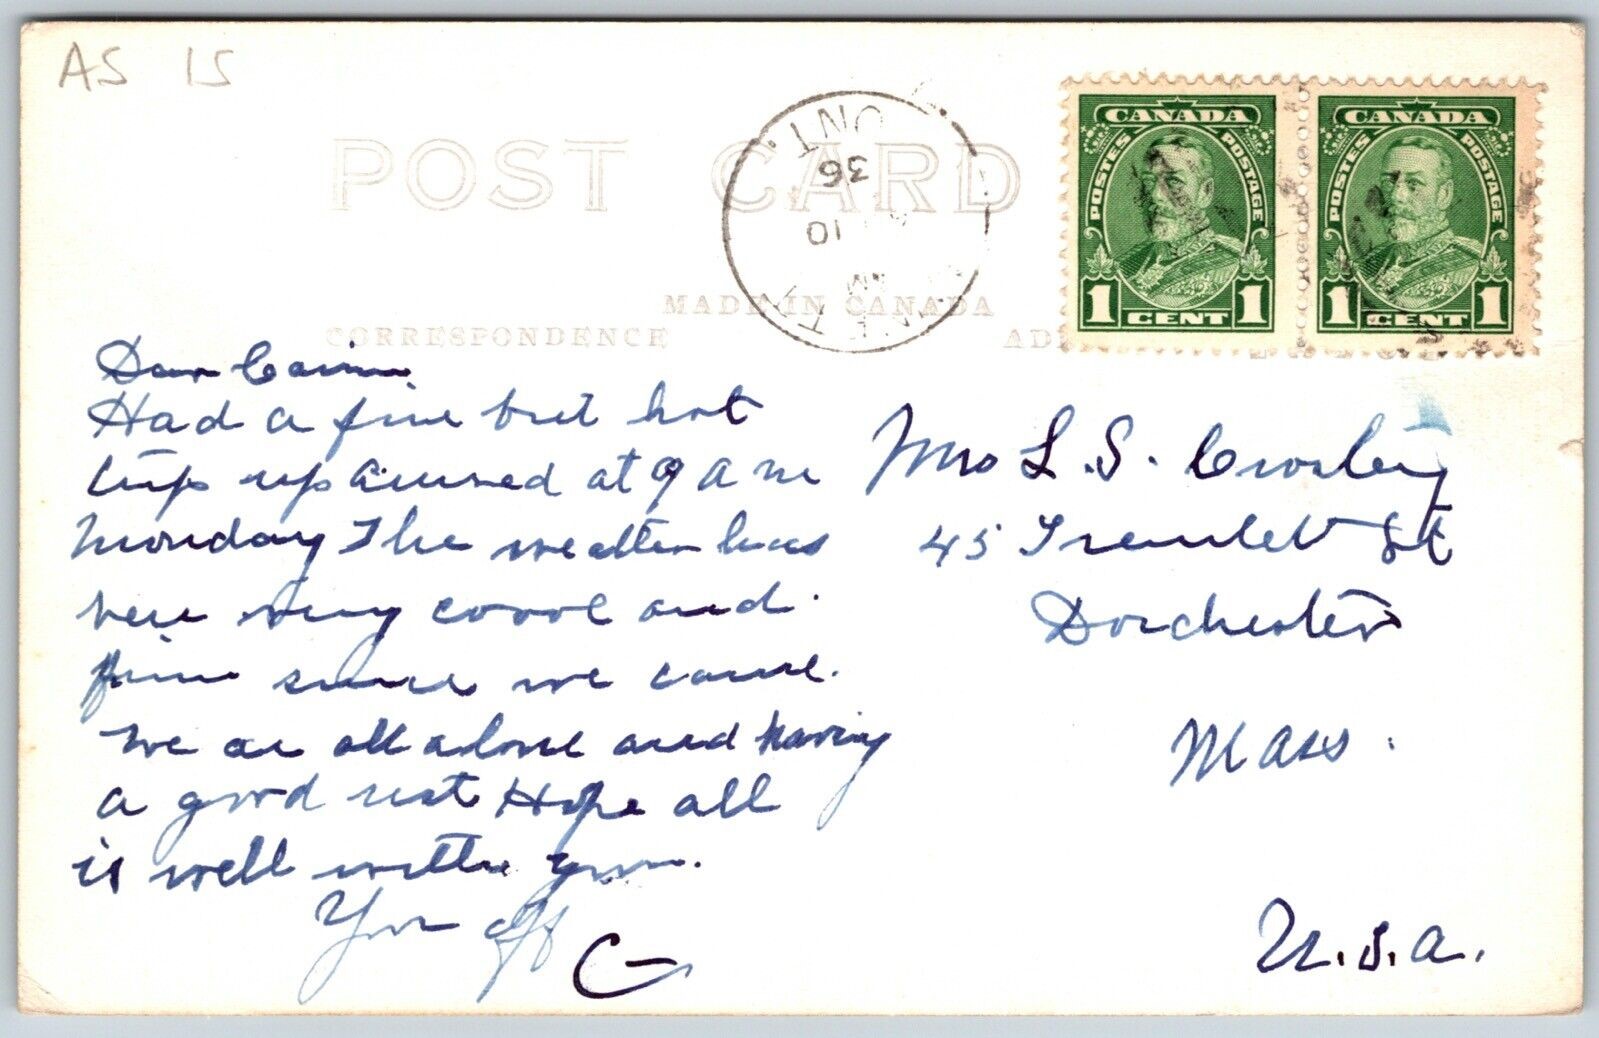 AS 15
POST CARD
ONT.
36
10
AM
MADE IN CANADA
CORRESPONDENCE
AD
CANADA
POSTES POSTAGE
1 CENT 1
CANADA
POSTES POSTAGE
1 CENT 1
Dear
Had a fine but hot
trip up arrived at 9 A m
Monday The weather has
been very coool and
fine since we came.
We are all alone and having
a good rest Hope all
is well with you.
Your aff
C
Mrs L. S. Crosley
45 Tremlet St
Dorchester
Mass.
U.S.A.